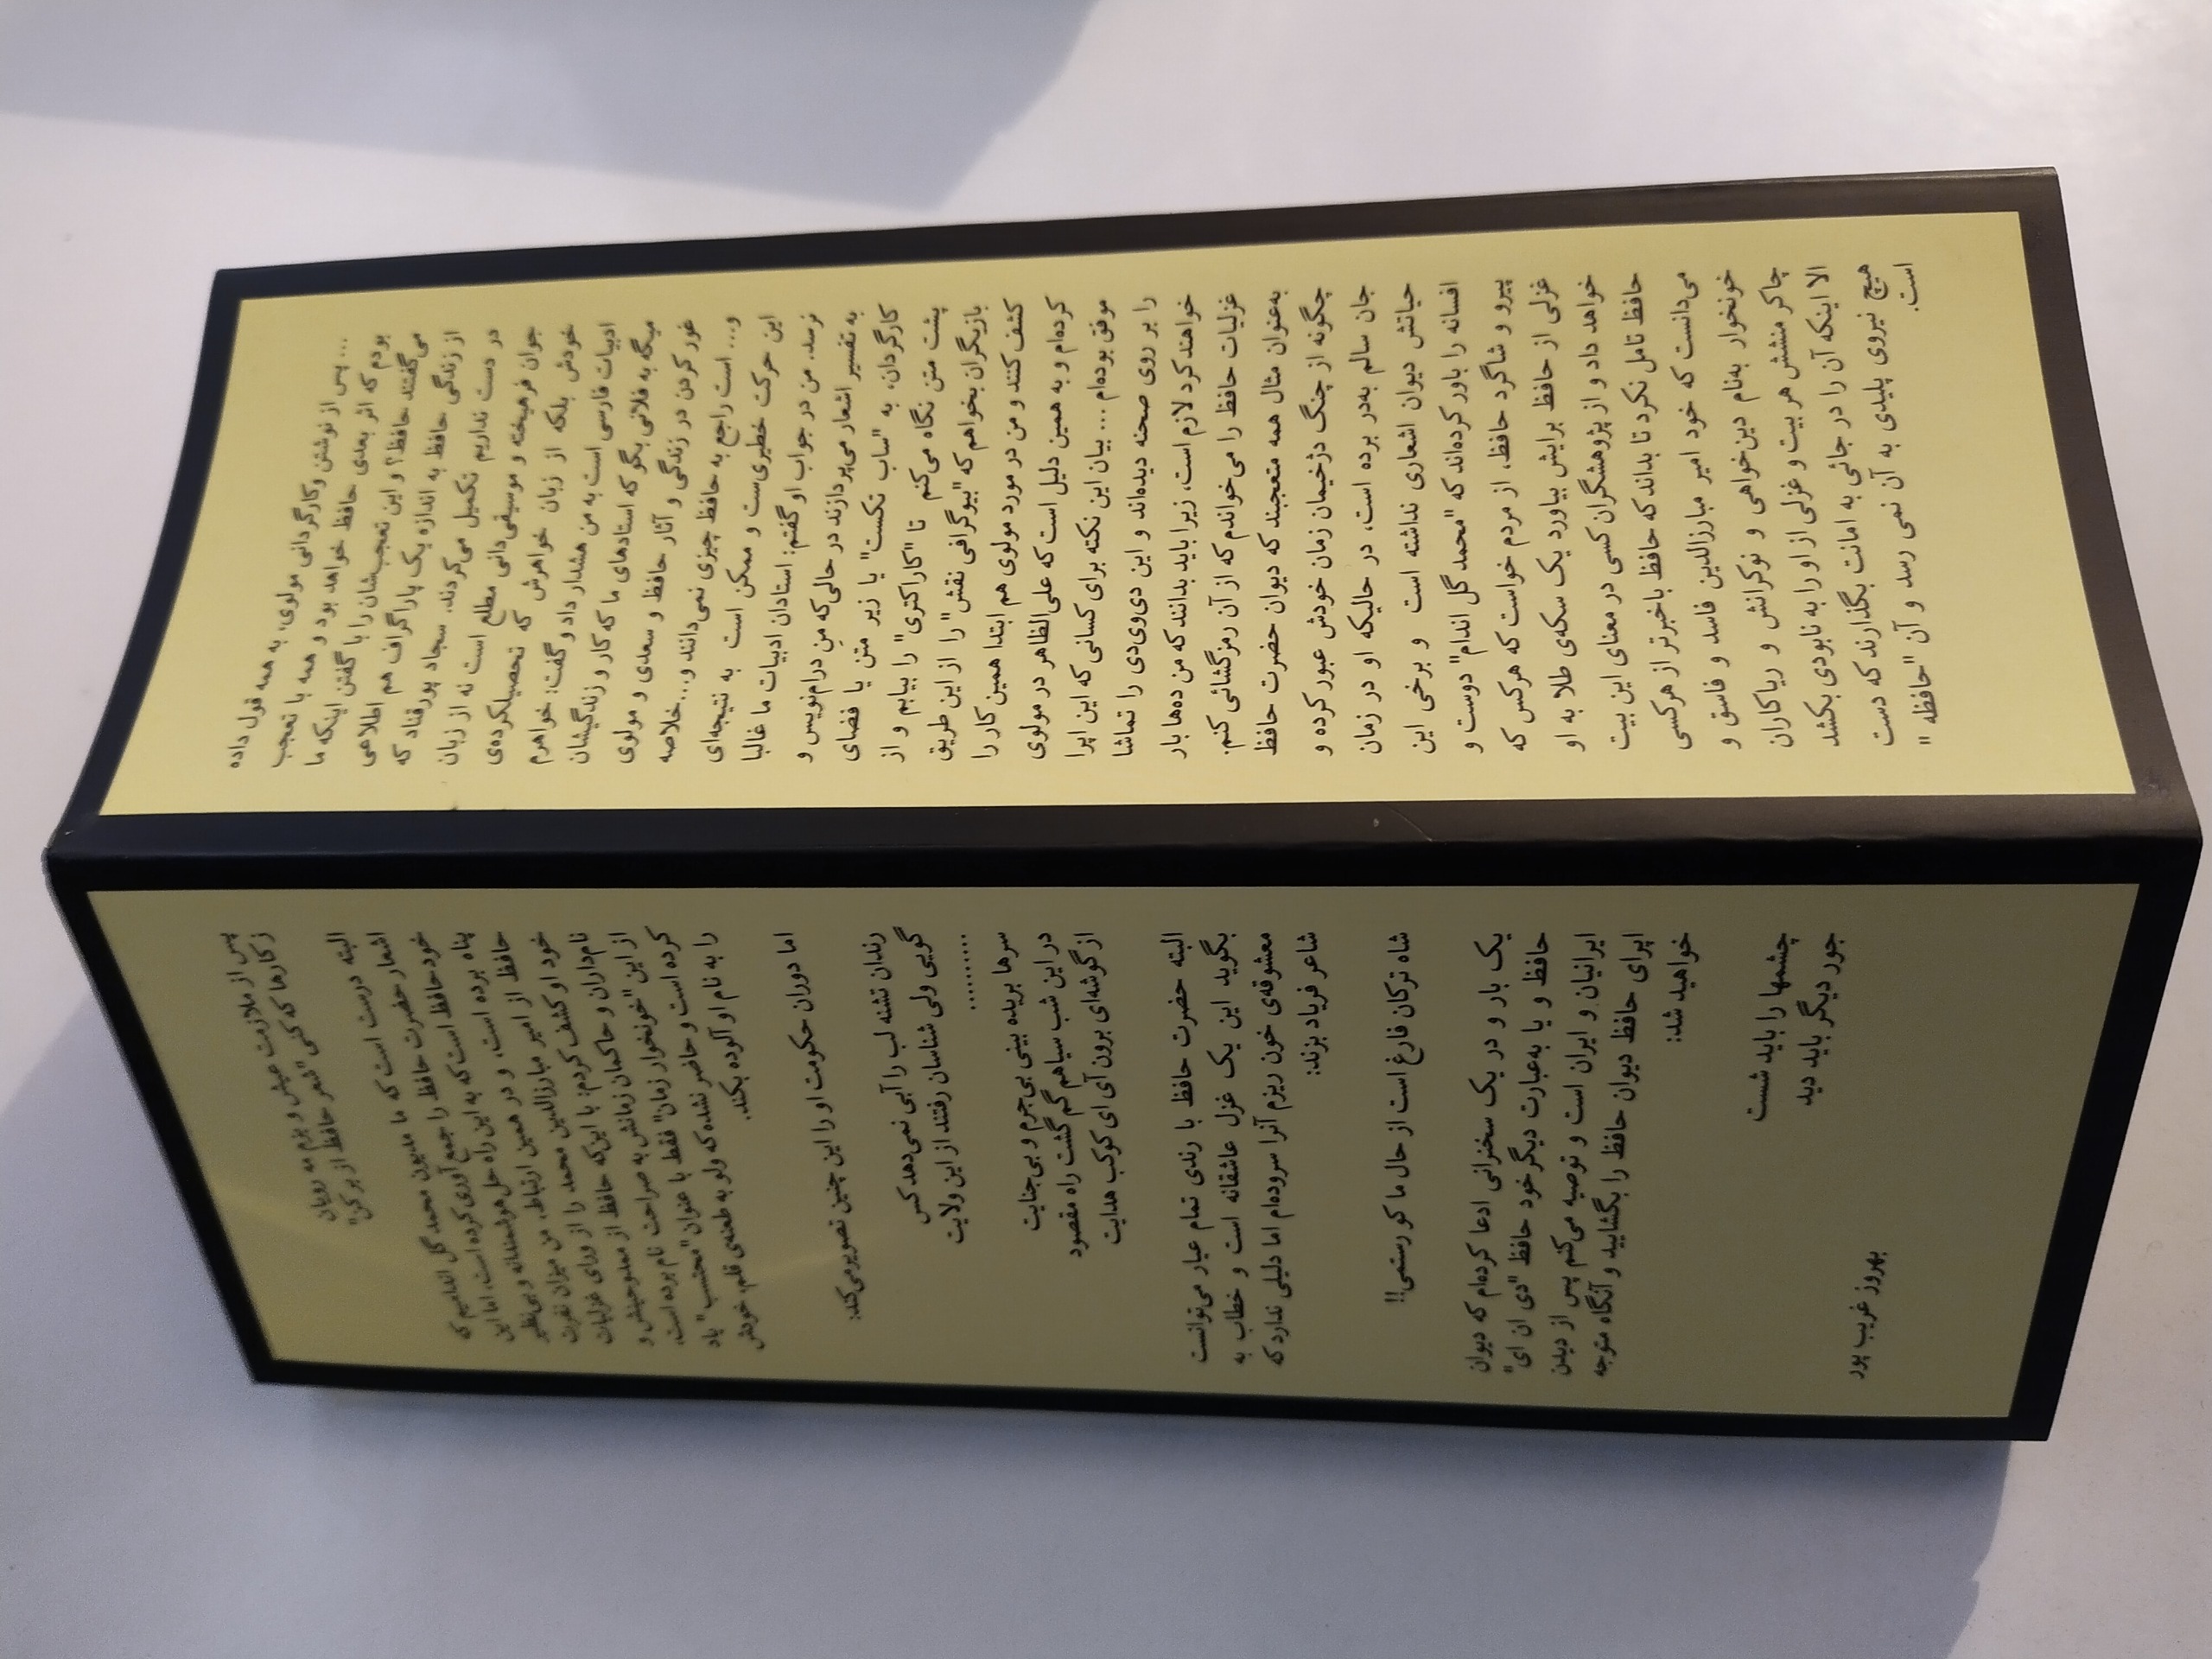 ... پس از نوشتن وکارگردانی مولوی، به همه قول داده
بودم که اثر بعدی حافظ خواهد بود و همه با تعجب
می‌گفتند حافظ؟ و این تعجب‌شان را با گفتن اینکه ما
از زندگی حافظ به اندازه یک پاراگراف هم اطلاعی
در دست نداریم تکمیل می‌کردند. سجاد پورقناد که
جوان فرهیخته و موسیقی‌دانی مطلع است نه از زبان
خودش بلکه از زبان خواهرش که تحصیلکرده‌ی
ادبیات فارسی است به من هشدار داد و گفت: خواهرم
میگه به فلانی بگو که استادهای ما که کار و زندگیشان
غور کردن در زندگی و آثار حافظ و سعدی و مولوی
و... است راجع به حافظ چیزی نمی‌دانند و...خلاصه
این حرکت خطیری‌ست و ممکن است به نتیجه‌ای
نرسد. من در جواب او گفتم: استادان ادبیات ما غالبا
به تفسیر اشعار می‌پردازند در حالی‌که منِ درام‌نویس و
کارگردان، به "ساب تکست" یا زیر متن یا فضای
پشت متن نگاه می‌کنم تا "کاراکتری" را بیابم و از
بازیگران بخواهم که "بیوگرافی نقش" را از این طریق
کشف کنند و من در مورد مولوی هم ابتدا همین کار را
کرده‌ام و به همین دلیل است که علی‌الظاهر در مولوی
موفق بوده‌ام ... بیان این نکته برای کسانی که این اپرا
را بر روی صحنه دیده‌اند و این دی‌وی‌دی را تماشا
خواهند کرد لازم است، زیرا باید بدانند که من ده‌ها بار
غزلیات حافظ را می‌خواندم که از آن رمزگشائی کنم:
به‌عنوان مثال همه متعجبند که دیوان حضرت حافظ
چگونه از چنگ دژخیمان زمان خودش عبور کرده و
جان سالم به‌در برده است، در حالیکه او در زمان
حیاتش دیوان اشعاری نداشته است و برخی این
افسانه را باور کرده‌اند که "محمد گل اندام" دوست و
پیرو و شاگرد حافظ، از مردم خواست که هرکس که
غزلی از حافظ برایش بیاورد یک سکه‌ی طلا به او
خواهد داد و از پژوهشگران کسی در معنای این بیت
حافظ تامل نکرد تا بداند که حافظ باخبرتر از هرکسی
می‌دانست که خود امیر مبارزالدین فاسد و فاسق و
خونخوار به‌نام دین‌خواهی و نوکرانش و ریاکاران
چاکر منشش هر بیت و غزلی از او را به نابودی بکشد
الا اینکه آن را در جائی به امانت بگذارند که دست
هیچ نیروی پلیدی به آن نمی رسد و آن "حافظه "
است.
پس از ملازمت عیش و بزم مه رویان
زکارها که کنی "شعر حافظ از بر کن"
البته درست است که ما مدیون محمد گل اندامیم که
اشعار حضرت حافظ را جمع آوری کرده است، اما این
خود حافظ است که به این راه حل هوشمندانه و بی‌نظیر
پناه برده است، و در همین ارتباط، من میزان نفرت
حافظ از امیر مبارزالدین محمد را از ورای غزلیات
خود او کشف کردم: با این‌که حافظ از ممدوحینش و
نام‌داران و حاکمان زمانش به صراحت نام برده است،
از این "خونخوار زمان" فقط با عنوان "محتسب" یاد
کرده است و حاضر نشده که ولو به طعنه‌ی قلم، خودش
را به نام او آلوده بکند.
اما دوران حکومت او را این چنین تصویرمی‌کند:
رندان تشنه لب را آبی نمی‌دهد کس
گویی ولی شناسان رفتند از این ولایت
..........
سرها بریده بینی بی‌جرم و بی‌جنایت
در این شب سیاهم گم گشت راه مقصود
از گوشه‌ای برون آی ای کوکب هدایت
البته حضرت حافظ با رندی تمام عیار می‌توانست
بگوید این یک غزل عاشقانه است و خطاب به
معشوقه‌ی خون ریزم آنرا سروده‌ام اما دلیلی ندارد که
شاعر فریاد بزند:
شاه ترکان فارغ است از حال ما کو رستمی!!
یک بار و در یک سخنرانی ادعا کرده‌ام که دیوان
حافظ و یا به‌عبارت دیگر خود حافظ "دی ان ای"
ایرانیان و ایران است و توصیه می‌کنم پس از دیدن
اپرای حافظ دیوان حافظ را بگشایید و آنگاه متوجه
خواهید شد:
چشمها را باید شست
جور دیگر باید دید
بهروز غریب پور